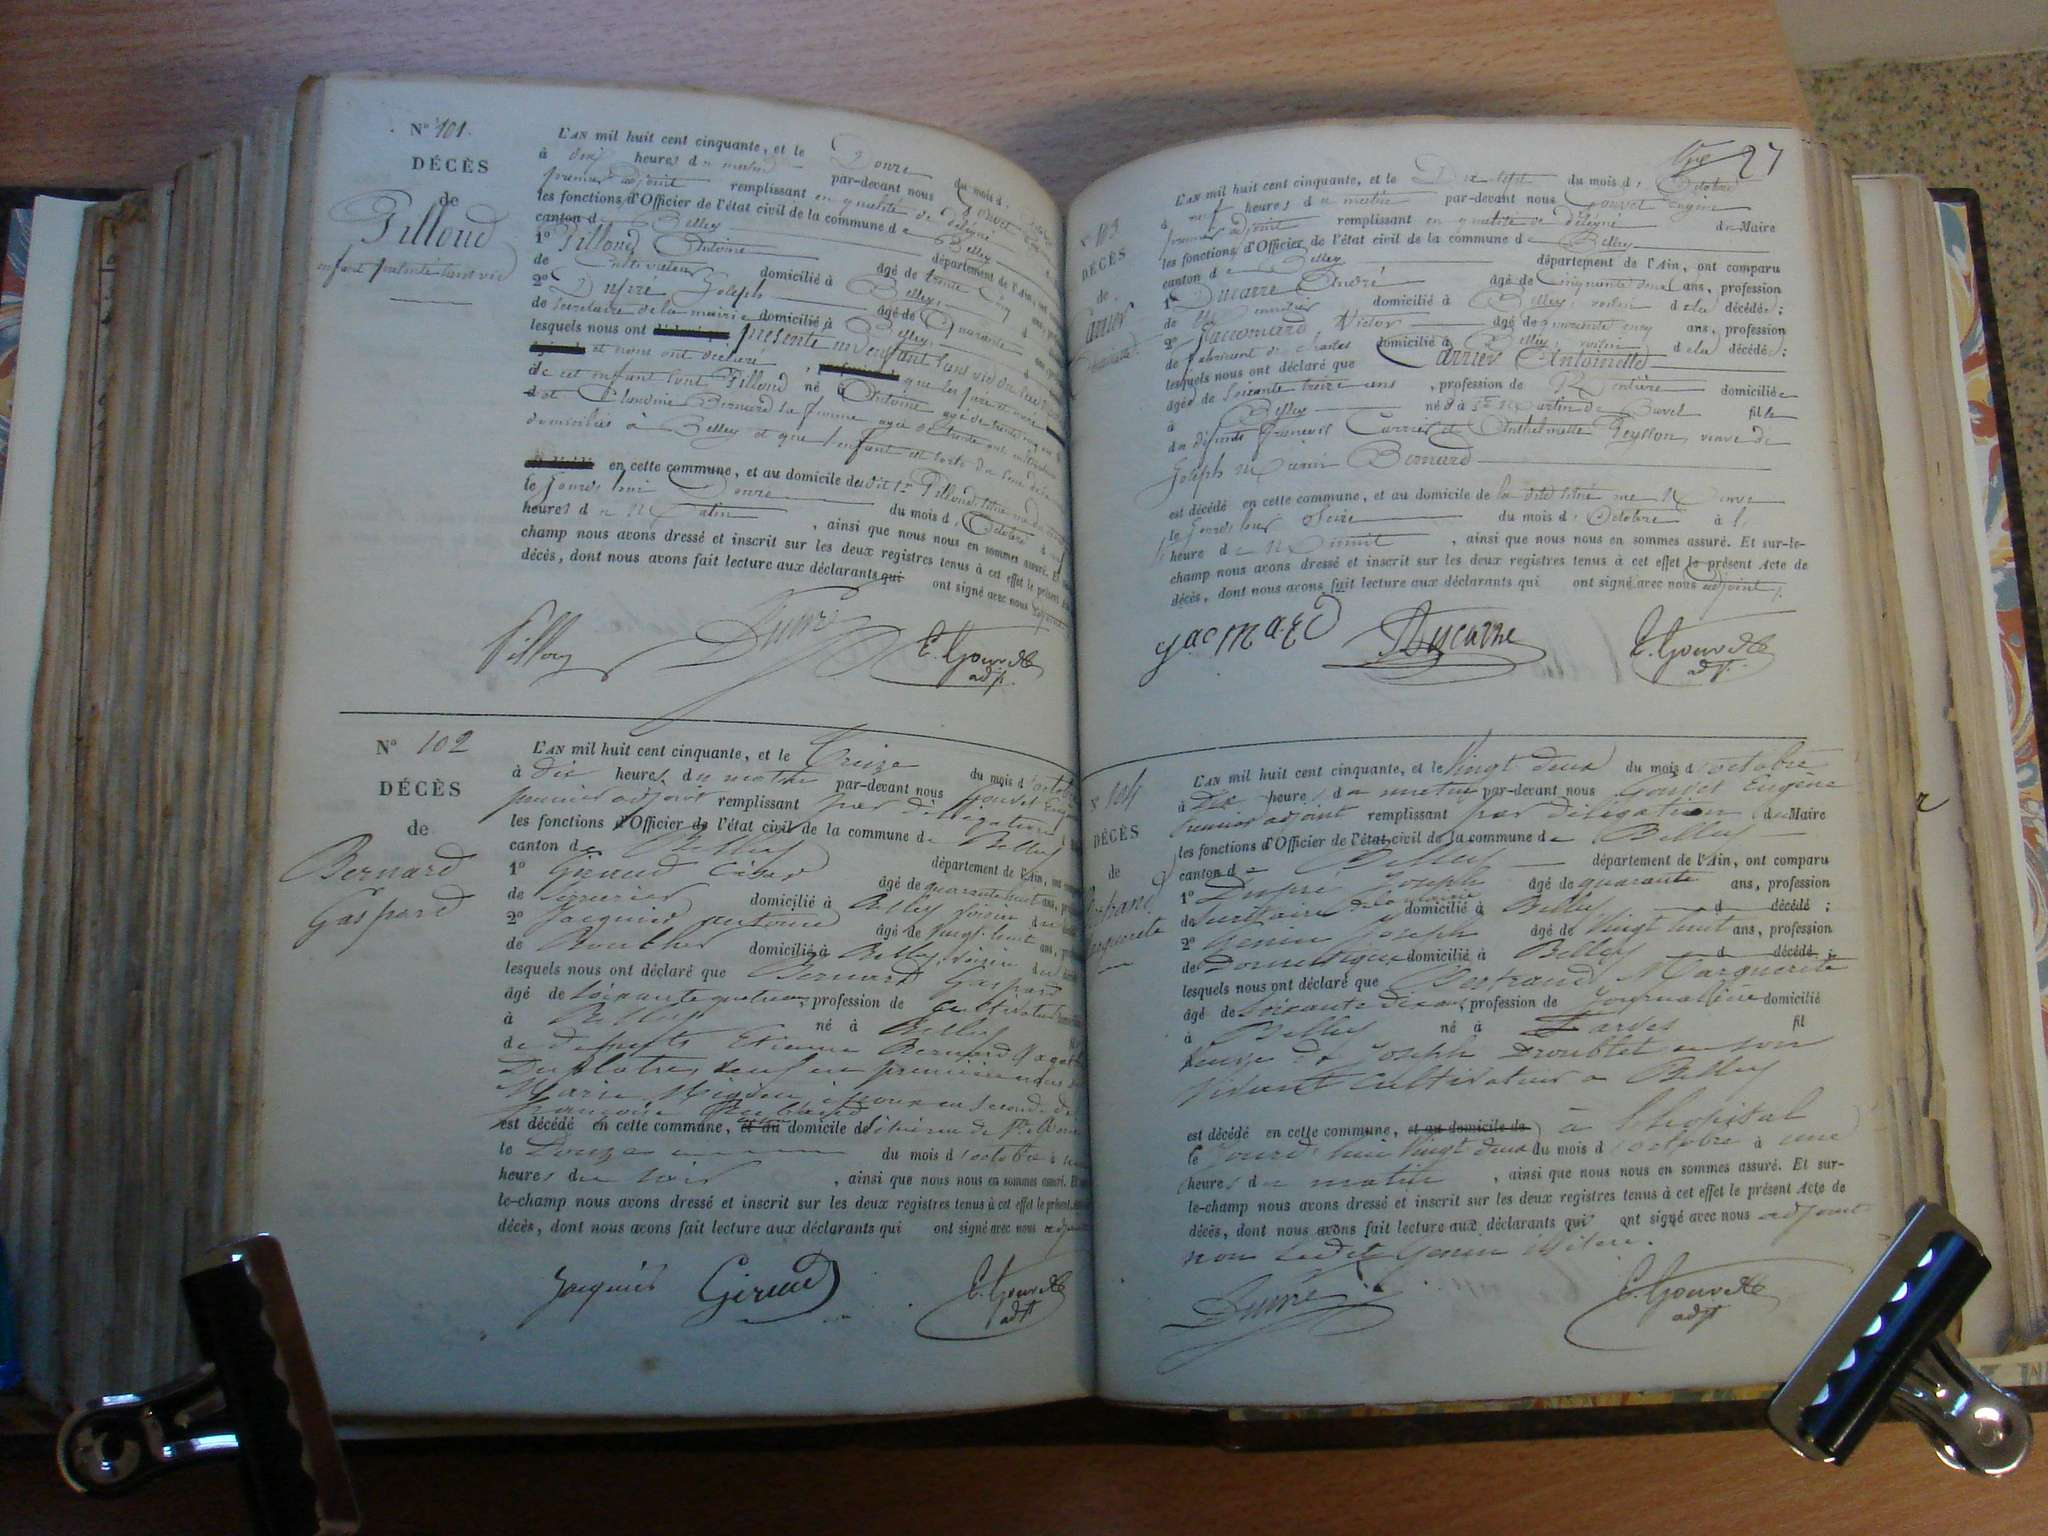 N° 101.
DÉCÈS
de
Pilloud
enfant présenté sans vie
L'AN mil huit cent cinquante, et le Douze du mois d'
à dix heures du matin par-devant nous Gouvet
premier adjoint remplissant en qualité de délégué
les fonctions d'Officier de l'état civil de la commune de Belley
canton de Belley département de l'Ain, ont
1° Pilloud Antoine âgé de trente cinq ans,
de cultivateur domicilié à Belley
2° Dupré Joseph âgé de Quarante ans,
de secretaire de la mairie domicilié à Belley
lesquels nous ont présenté un enfant sans vie
et nous ont déclaré que les père et mère
de cet enfant sont Pilloud né à Antoine agé de trente cinq ans
et Claudine Bernard sa femme agée de trente ans
domiciliés à Belley et que l'enfant est sorti du sein de
en cette commune, et au domicile dudit Sr Pilloud
le jourd'hui Douze du mois d'Octobre à
heures du Matin, ainsi que nous nous en sommes assuré. Et
champ nous avons dressé et inscrit sur les deux registres tenus à cet effet le présent
décès, dont nous avons fait lecture aux déclarants qui ont signé avec nous adjoint
Pilloud Dupré E. Gouvet
adj.
N° 102
DÉCÈS
de
Bernard
Gaspard
L'AN mil huit cent cinquante, et le Treize du mois d'octobre
à dix heures du matin par-devant nous Gouvet Eugène
premier adjoint remplissant par délégation
les fonctions d'Officier de l'état civil de la commune de Belley
canton de Belley département de l'Ain, ont
1° Giraud César âgé de quarante huit ans,
de Serrurier domicilié à Belley voisin du
2° Jacquier Antoine âgé de vingt huit ans,
de Boucher domicilié à Belley voisin du
lesquels nous ont déclaré que Bernard Gaspard
âgé de soixante quatre ans, profession de cultivateur
à Belley né à Belley
de defunts Etienne Bernard
veuf en première
Marie époux en seconde de
françoise
est décédé en cette commune, et au domicile de
le Douze du mois d'octobre à
heures du soir, ainsi que nous nous en sommes assuré. Et
le-champ nous avons dressé et inscrit sur les deux registres tenus à cet effet le présent
décès, dont nous avons fait lecture aux déclarants qui ont signé avec nous
Jacquier Giraud E. Gouvet
adjt
27
103
DÉCÈS
de
L'AN mil huit cent cinquante, et le Dix sept du mois d'Octobre
à neuf heures du matin par-devant nous Gouvet Eugène
premier adjoint remplissant en qualité de délégué du Maire
les fonctions d'Officier de l'état civil de la commune de Belley
canton de Belley département de l'Ain, ont comparu
1° Ducarre André âgé de Cinquante deux ans, profession
de Menuisier domicilié à Belley, voisin de la décédée;
2° Jacomard Victor âgé de quarante cinq ans, profession
de fabricant de domicilié à Belley, voisin de la décédée;
lesquels nous ont déclaré que Carrier Antoinette
âgée de soixante treize ans, profession de Rentière domiciliée
à Belley née à St Martin de Bavel fille
de défunts Carrier et Anthelmette Peysson, veuve de
Joseph Marie Bernard
est décédé en cette commune, et au domicile de
le du mois d'Octobre à
heure de Minuit, ainsi que nous nous en sommes assuré. Et sur-le-
champ nous avons dressé et inscrit sur les deux registres tenus à cet effet le présent Acte de
décès, dont nous avons fait lecture aux déclarants qui ont signé avec nous adjoint.
Jacmard Ducarre E. Gouvet
adjt.
104
DÉCÈS
de
L'AN mil huit cent cinquante, et le vingt deux du mois d'octobre
à Dix heures du matin par-devant nous Gouvet Eugène
premier adjoint remplissant par délégation du Maire
les fonctions d'Officier de l'état civil de la commune de Belley
canton de Belley département de l'Ain, ont comparu
1° Dupré Joseph âgé de quarante ans, profession
de secrétaire de la mairie domicilié à Belley d décédé;
2° Genin Joseph âgé de vingt huit ans, profession
de Domestique domicilié à Belley d décédé;
lesquels nous ont déclaré que Bertrand Marguerite
âgé de soixante dix ans, profession de Journalière domicilié
à Belley né à Parves fil
veuve de Joseph Droublet en son
vivant cultivateur à Belley
est décédé en cette commune, et au domicile de à l'hopital
le jourd'hui vingt deux du mois d'octobre à une
heures du matin, ainsi que nous nous en sommes assuré. Et sur-
le-champ nous avons dressé et inscrit sur les deux registres tenus à cet effet le présent Acte de
décès, dont nous avons fait lecture aux déclarants qui ont signé avec nous adjoint
non ledit Genin illitéré.
Dupré E. Gouvet
adjt